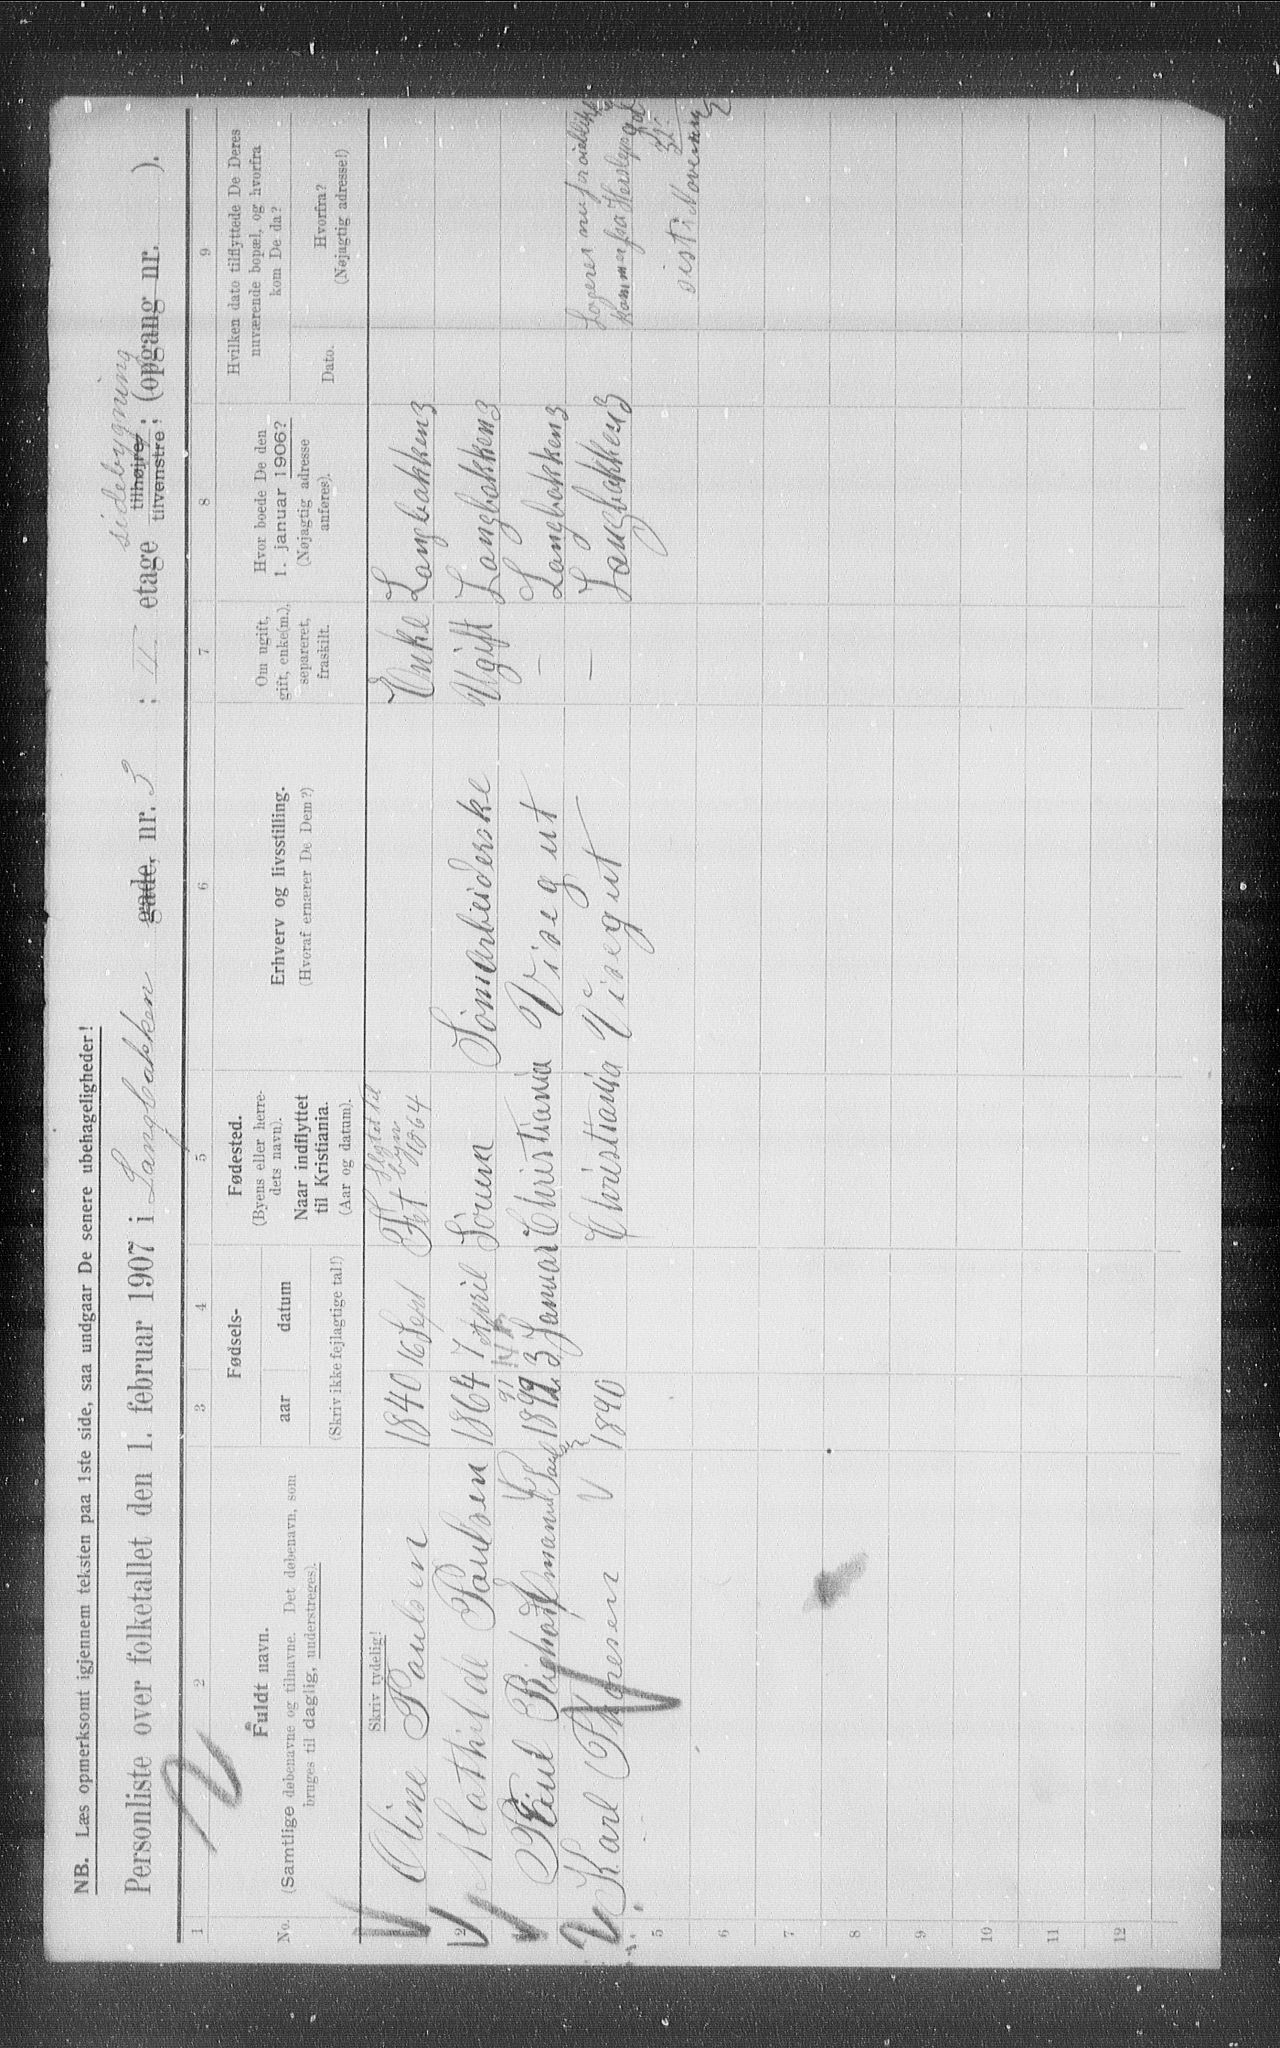 NB. Læs opmerksomt igjennem teksten paa 1ste side, saa undgaar De senere ubehageligheder!
Personliste over folketallet den 1. februar 1907 i Langbakken gade, nr. 3 ; II etage sidebygning tilhøjre, tilvenstre; (opgang nr. ).
1 2 3 4 5 6 7 8 9
No.
Fuldt navn.
(Samtlige døbenavne og tilnavne. Det døbenavn, som
bruges til daglig, understreges).
Fødsels-
aar datum
(Skriv ikke fejlagtige tal!)
Fødested.
(Byens eller herre-
dets navn).
Naar indflyttet
til Kristiania.
(Aar og datum).
Erhverv og livsstilling.
(Hvoraf ernærer De Dem?)
Om ugift,
gift, enke(m.),
separeret,
fraskilt.
Hvor boede De den
1. januar 1906?
(Nøjagtig adresse
anføres).
Hvilken dato tilflyttede De Deres
nuværende bopæl, og hvorfra
kom De da?
Dato.
Hvorfra?
(Nøjagtig adresse!)
Skriv tydelig!
Oline Paulsen 1840 16 Sept Fet flyttet til byen 1864 Enke Langbakken 3
2 Mathilde Paulsen 1864 7 April Sørum Sømarbeiderske Ugift Langbakken 3
Paul Richard 3 Januar Christiania Visegut — Langbakken 3
Karl Thoresen 1890 Christiania Visegut — Langbakken 3
Logerer nu
kommer fra
sidst i November
5
6
7
8
9
10
11
12